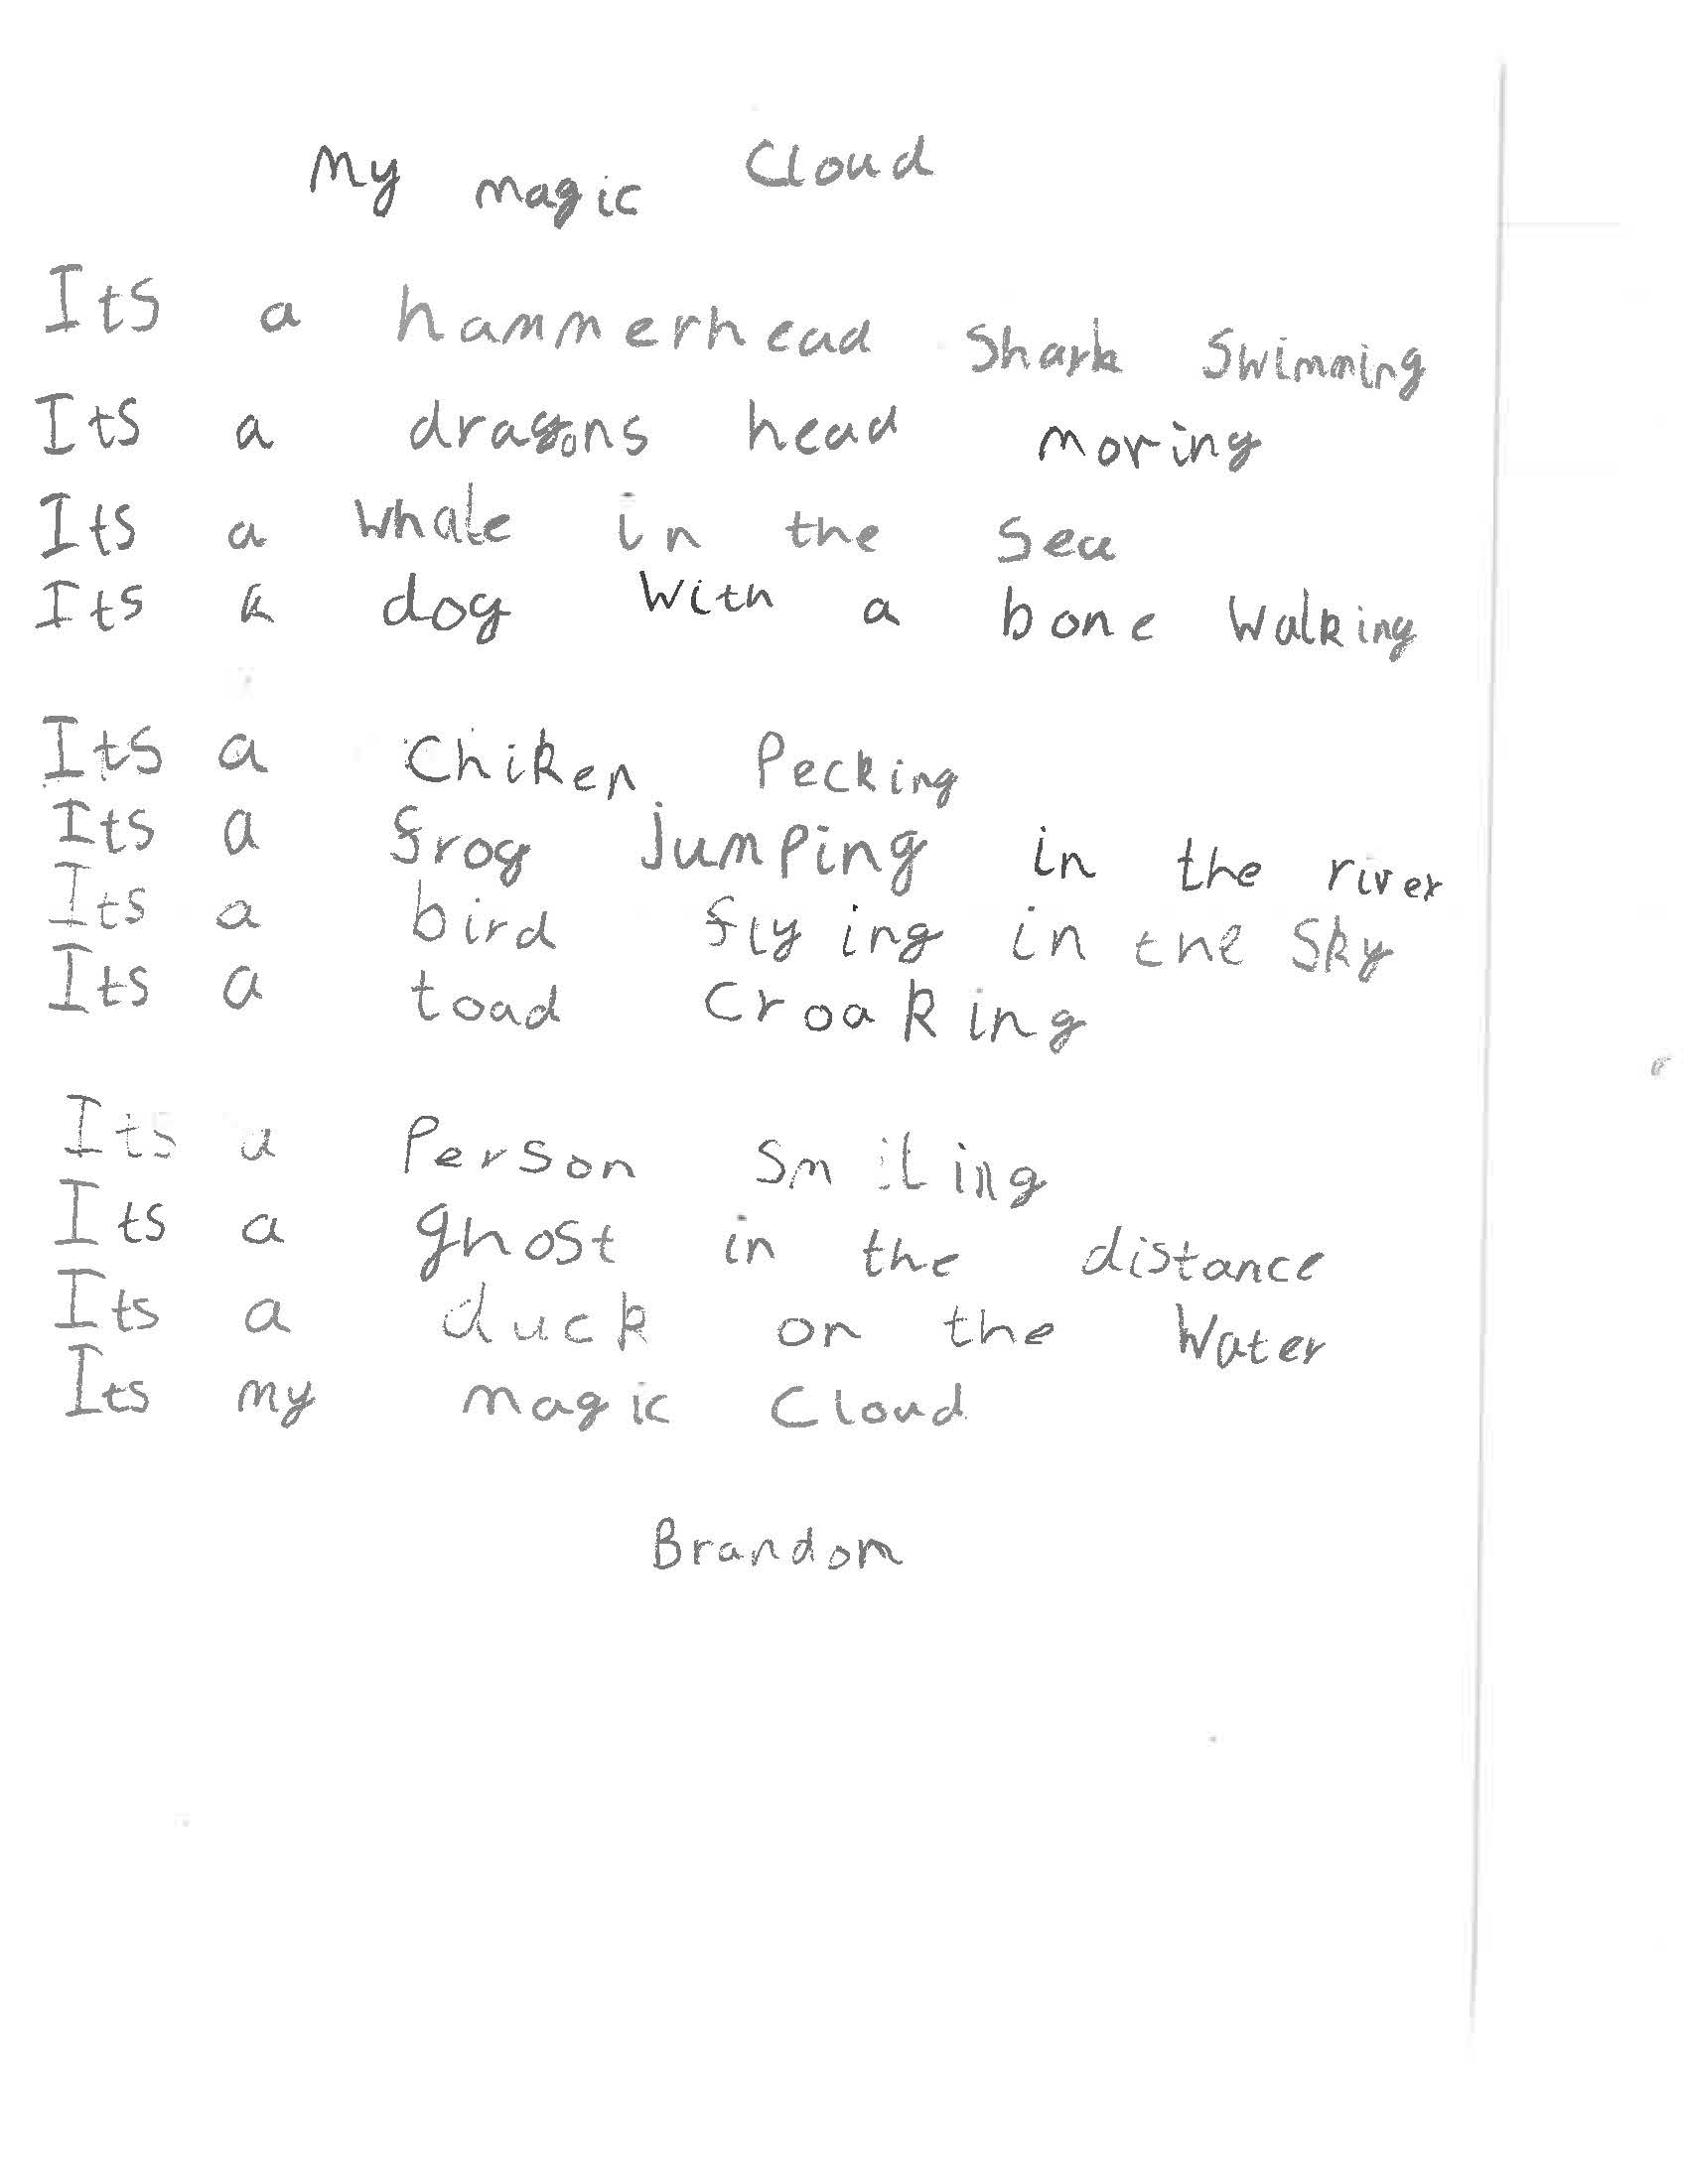 My magic Cloud
Its a hammerhead Shark Swimming
Its a dragons head moving
Its a whale in the Sea
Its a dog with a bone Walking
Its a Chiken Pecking
Its a frog Jumping in the river
Its a bird flying in the Sky
Its a toad Croaking
Its a Person Smiling
Its a ghost in the distance
Its a duck on the Water
Its my magic Cloud
Brandon